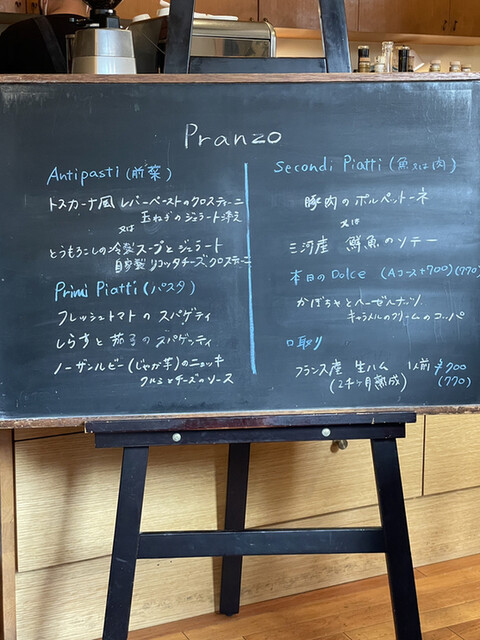 Pranzo
Antipasti (前菜)
トスカーナ風 レバーペーストのクロスティーニ
玉ねぎのジェラート添え
又は
とうもろこしの冷製スープとジェラート
自家製リコッタチーズクロスティーニ
Primi Piatti (パスタ)
フレッシュトマトの スパゲティ
しらすと 茄子の スパゲッティ
ノーザンルビー(じゃが芋)のニョッキ
クルミとチーズのソース
Secondi Piatti (魚又は肉)
豚肉の ポルペットーネ
又は
三河産 鮮魚のソテー
本日のDolce (Aコース+700)(770)
かぼちゃとヘーゼルナッツ
キャラメルのクリームのコッパ
口取り
フランス産 生ハム 1人前 ¥700
(24ヶ月熟成) (770)